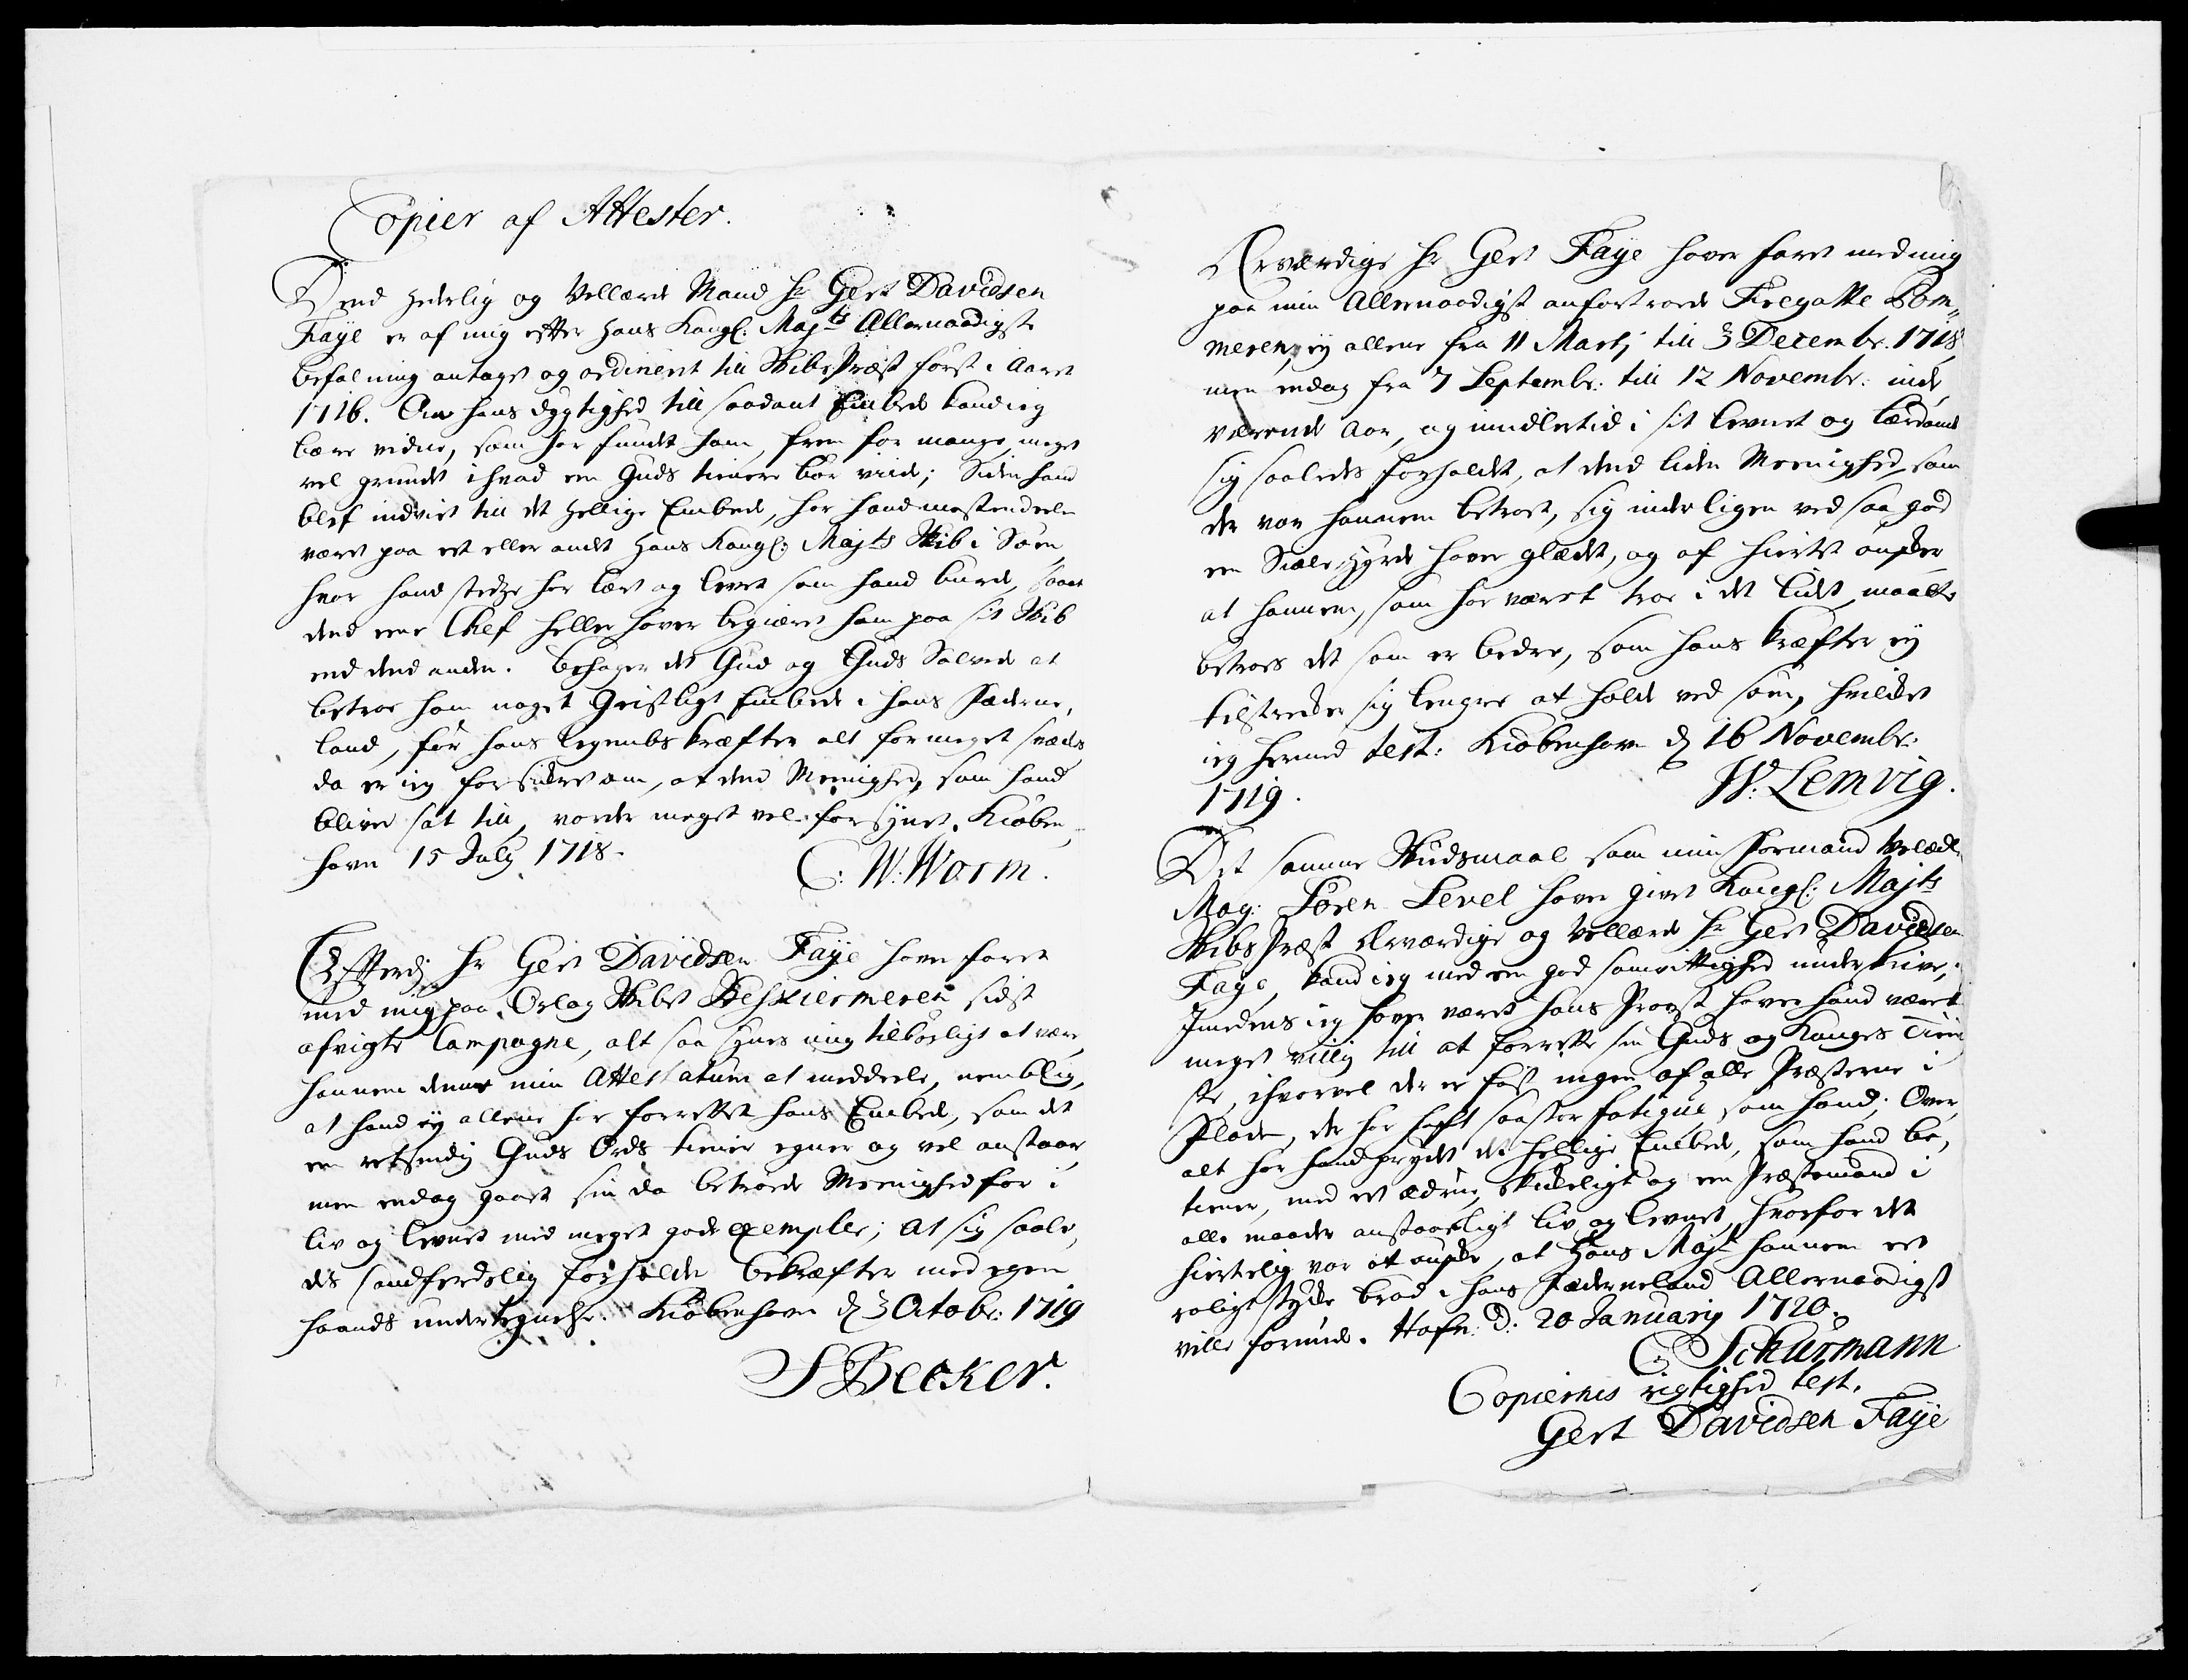 Copier af Attester.
Dend hederlig og Vellærde Mand Hr Gert Davidsen
Faÿe er af mig efter Hans Kongl: Majts Allernaadigste
befalning antaget og ordineret till Skibs Præst först i Aaret
1716. Om hans dygtighed till saadant Embede kand ieg
bære vidne, som har fundet ham, frem for mange, meget
vel grundet i hvad een Guds tienere bör viide; Siden hand
blef indviet till det hellige Embede, har hand mestendeelen
været paa eet eller andet Hans Kongl: Majts Skib i Söen,
hvor hand stedze har lært og levet som hand burde, saa at
dend eene Chef heller haver begiæret ham paa sit Skib
end dend anden. Behager det Gud og Guds Salvede at
betroe ham noget Geistligt Embede i hans Fæderne,
land, för hans legembs kræfter alt formeget svæckes,
da er ieg forsickret om, at dend Meenighed, som hand
bliver sat till, vorder meget vel forsÿnet. Kiöben,
havn 15 Julÿ 1718.
C: W: Worm.
Efterdj Hr Gert Davidsen Faÿe haver faret
med mig paa Orlog Skibet Beskiermeren sidst
afvigte Campagne, alt saa sÿnes mig tilbörligt at være,
hannem denne min Attestatum at meddeele, nemblig,
at hand eÿ allene har forrettet hans Embede, som det
en retsindig Guds Ords tiener egner og vel anstaar,
men endog gaaet sin da betroede Meenighed for i
liv og levnet med meget gode exempler; At sig saale,
des sandferdelig forholder bekræfter med egen
haands undertegnelse. Kiöbenhavn d 3 Octobr: 1719
S Becker.
Ærværdige Hr Gert Faÿe haver faret med mig
paa min Allernaadigst anfortroede Fregatte Pom,,
meren, eÿ allene fra 11 Martj till 3 Decembr. 1718,
men endog fra 7 Septembr: till 12 Novembr: inde,
værende Aar, og imidlertid i sit levnet og lærdomb
sig saaledes forholdet, at dend liden Meenighed, som
der var hannem betroet, sig inderligen ved saa god
en Siæle Hyrde haver glædet, og af hiertet önsker,
at hannem, som har været troe i det lidet, maatte
betroes det som er bedre, som hans kræfter eÿ
tilstreder sig lengre at holde ved söen, hvilcket
ieg hermed test: Kiöbenhavn d 16 Novembr:
1719.
W: Lemvig.
Det samme Skudsmaal som min Formand Velædle
Mag: Sören Sevel haver givet Kongl: Majts
Skibs Præst Ærværdige og Vellærde Hr Gert Davidsen
Faÿe, kand ieg med een god samvittighed underskrive,
Imedens ieg haver været hans Provst haver hand været
meget villig till at forrette sin Guds og Konges Tiene
ste, ihvorvel der er fast ingen af alle Præsterne i
Flode, der har haft saa stor fatigue, som hand; Over,
alt har hand prydet det hellige Embede, som hand be,
tiener, med et ædrue, skickeligt og een Præstemand i
alle maader anstændligt liv og levnet, hvorfor det
hiertelig var at önske, at Hans Majt hannem eet
roligt stycke bröd i hans Fæderneland Allernaadigst
ville forunde. Hafn: D: 20 Januarij 1720.
C. Schurmann
Copiernes rigtighed test.
Gert Davidsen Faÿe